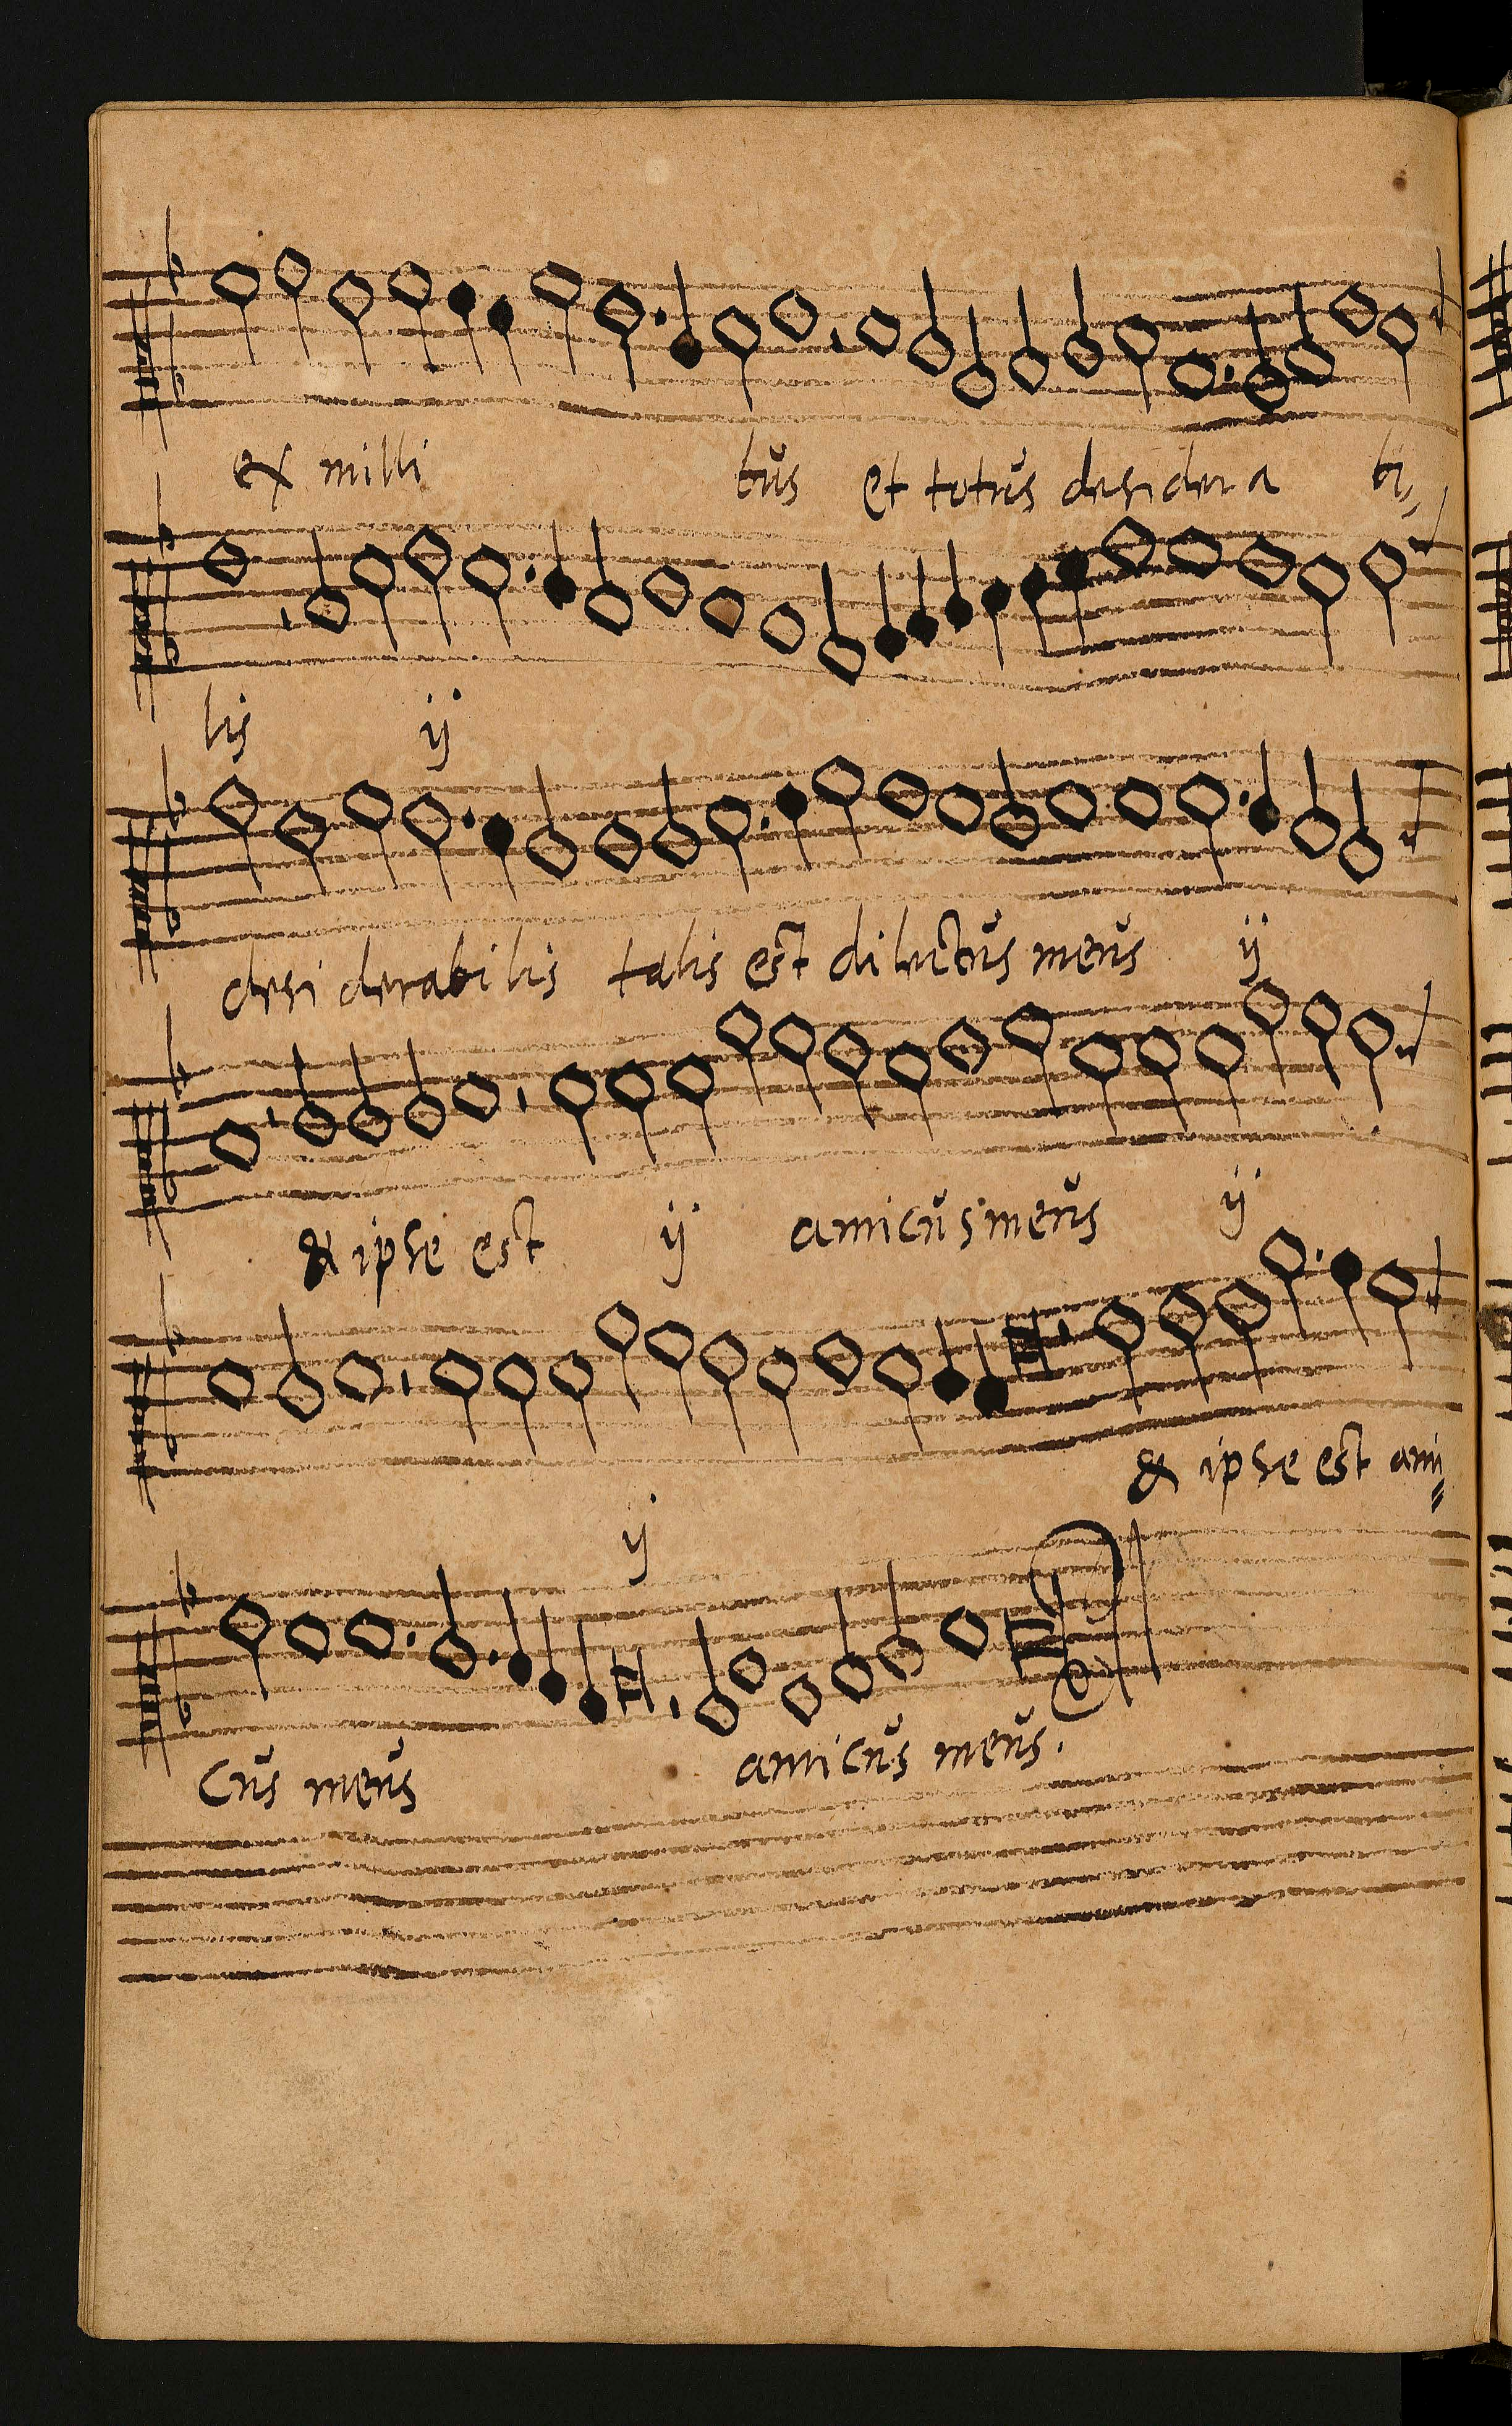 ex milli bŭs et totŭs desidera bi,,
lis ij
desi derabilis talis est dilectŭs meŭs ij
& ipse est ij amicŭs meŭs ij
ij & ipse est ami=
cŭs meŭs amicŭs meŭs.